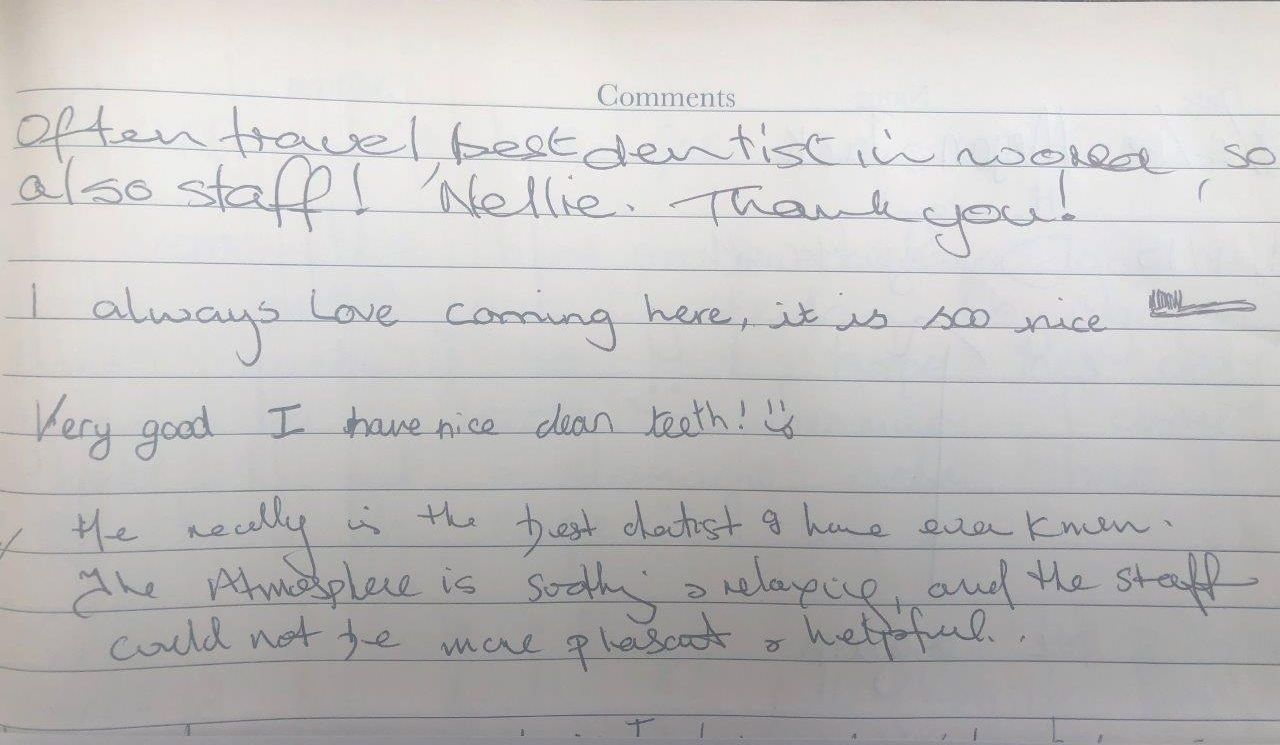 Comments
Often travel, best dentist in world, so
also staff! Nellie. Thank you!
I always love coming here, it is soo nice
Very good I have nice clean teeth! :)
He really is the best dentist I have ever known.
The Atmosphere is soothing & relaxing, and the staff
could not be more pleasant & helpful.